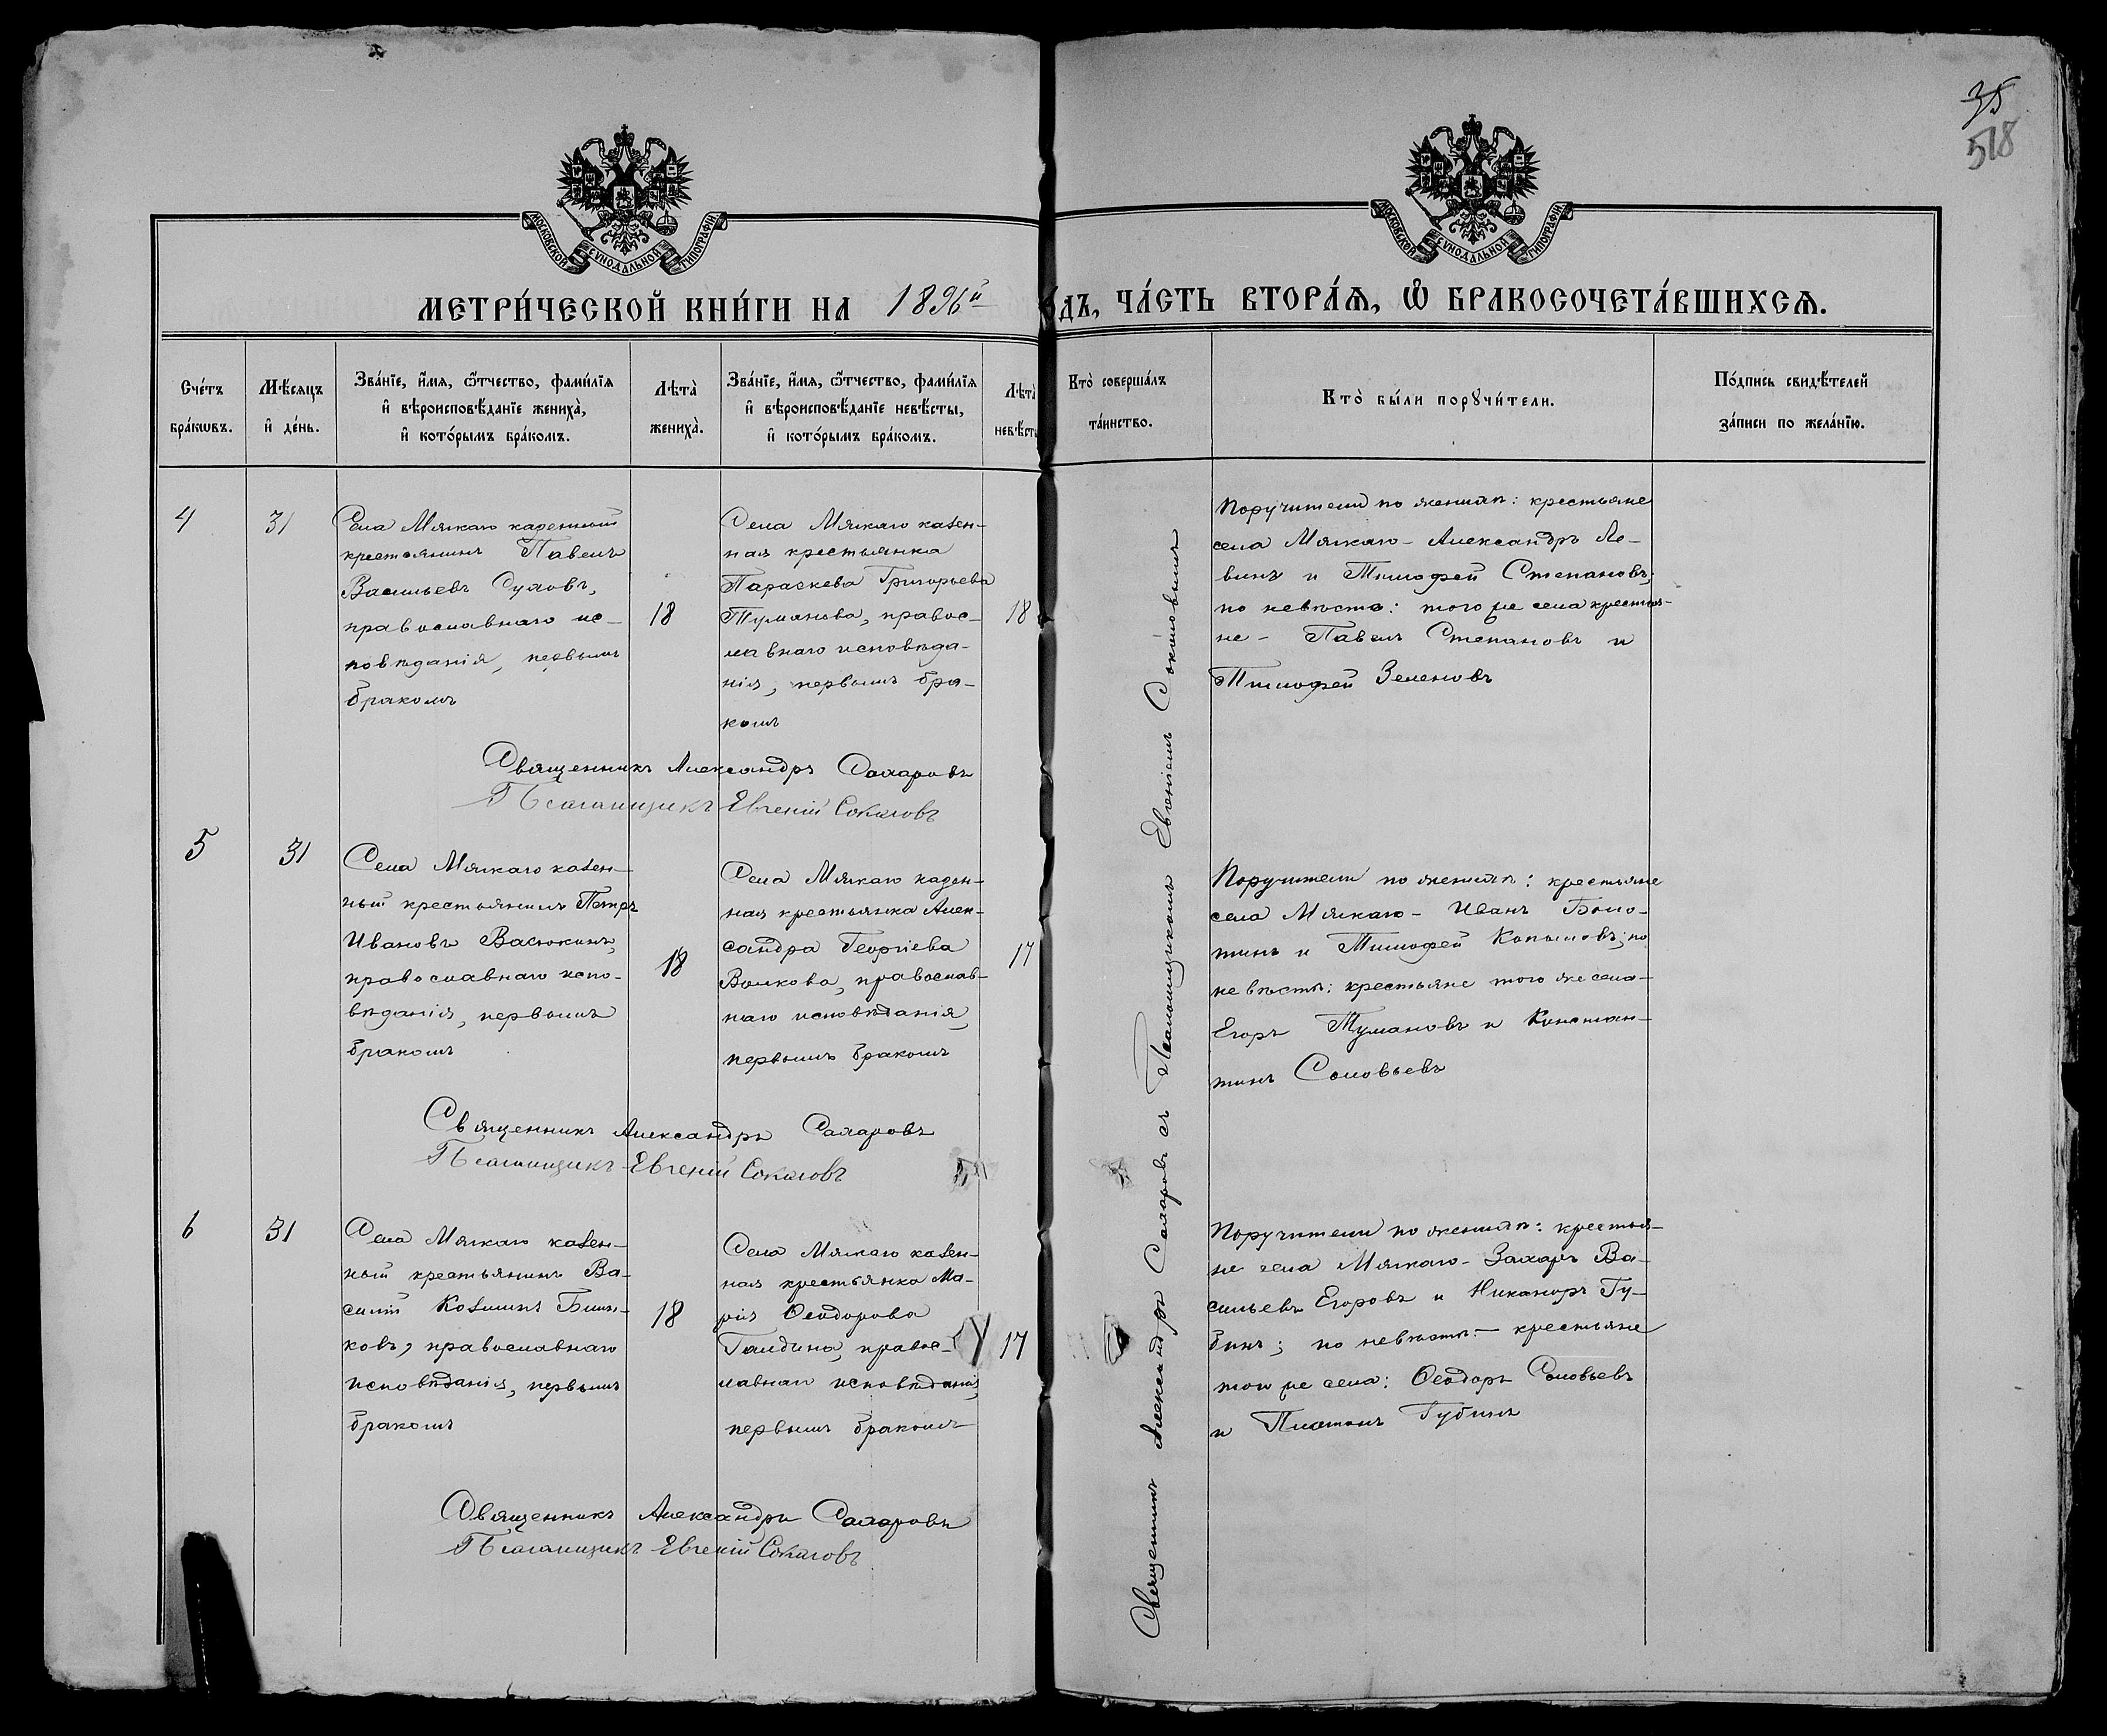 35
518
МОСКОВСКОЙ СѴНОДАЛЬНОЙ ТИПОГРАФІИ
МОСКОВСКОЙ СѴНОДАЛЬНОЙ ТИПОГРАФІИ
МЕТРИ́ЧЕСКОЙ КНИ́ГИ НА 1896й
ДЪ, ЧА́СТЬ ВТОРА́Ѧ, Ѽ БРАКОСОЧЕТА́ВШИХСѦ.
Сче́тъ
бра́кѡвъ.
Мѣ́сѧцъ
и҆ де́нь.
Зва́нїе, и҆́мѧ, ѻ҆́тчество, фами́лїѧ
и҆ вѣроисповѣ́данїе жениха̀,
и҆ кото́рымъ бра́комъ.
Лѣта̀
жениха̀.
Зва́нїе, и҆́мѧ, ѻ҆́тчество, фами́лїѧ
и҆ вѣроисповѣ́данїе невѣ́сты,
и҆ кото́рымъ бра́комъ.
Лѣта̀
невѣ́сты
Кто̀ соверша́лъ
та́инство.
Кто̀ бы́ли порꙋчи́тели.
По́дпись свидѣ́телей
за́писи по жела́нїю.
4
31
Села Мягкаго казенный
крестьянинъ Павелъ
Васильевъ Суховъ,
православнаго ис-
повѣданія, первымъ
бракомъ
18
Села Мягкаго казен-
ная крестьянка
Параскева Григорьева
Туманова, правос-
лавнаго исповѣда-
нія, первымъ бра-
комъ
18
Поручители по женихѣ: крестьяне
села Мягкаго - Александръ Ле-
винъ и Тимофей Степановъ;
по невѣстѣ: того же села крестья-
не - Павелъ Степановъ и
Тимофей Зеленовъ
Священникъ Александръ Сахаровъ
Псаломщикъ Евгеній Соколовъ
5
31
Села Мягкаго казен-
ный крестьянинъ Петръ
Ивановъ Васюкинъ,
православнаго испо-
вѣданія, первымъ
бракомъ
18
Села Мягкаго казен-
ная крестьянка Алек-
сандра Георгіева
Волкова, православ-
наго исповѣданія,
первымъ бракомъ
17
Поручители по женихѣ: крестьяне
села Мягкаго - Иванъ Боло-
тинъ и Тимофей Копыловъ; по
невѣстѣ: крестьяне того же села -
Егоръ Тумановъ и Констан-
тинъ Соловьевъ
Священникъ Александръ Сахаровъ
Псаломщикъ Евгеній Соколовъ
6
31
Села Мягкаго казен-
ный крестьянинъ Ва-
силій Козьминъ Блин-
ковъ, православнаго
исповѣданія, первымъ
бракомъ
18
Села Мягкаго казен-
ная крестьянка Ма-
рія Ѳеодорова
Галдина, правос-
лавнаго исповѣданія,
первымъ бракомъ
17
Поручители по женихѣ: крестья-
не села Мягкаго - Захаръ Ва-
сильевъ Егоровъ и Никаноръ Гу-
бинъ; по невѣстѣ: - крестьяне
того же села: Ѳеодоръ Соловьевъ
и Платонъ Губинъ
Священникъ Александръ Сахаровъ
Псаломщикъ Евгеній Соколовъ
Священникъ Александръ Сахаровъ съ Псаломщикомъ Евгеніемъ Соколовымъ